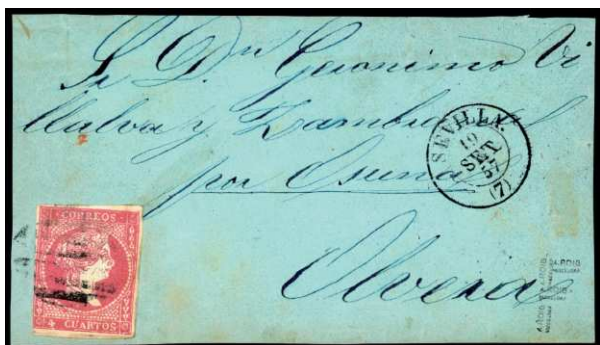 Sr Dn Geronimo Vi
llalva y Zambra
por Osuna
Olvera
SEVILLA
19
SET
57
(7)
CORREOS
4 CUARTOS